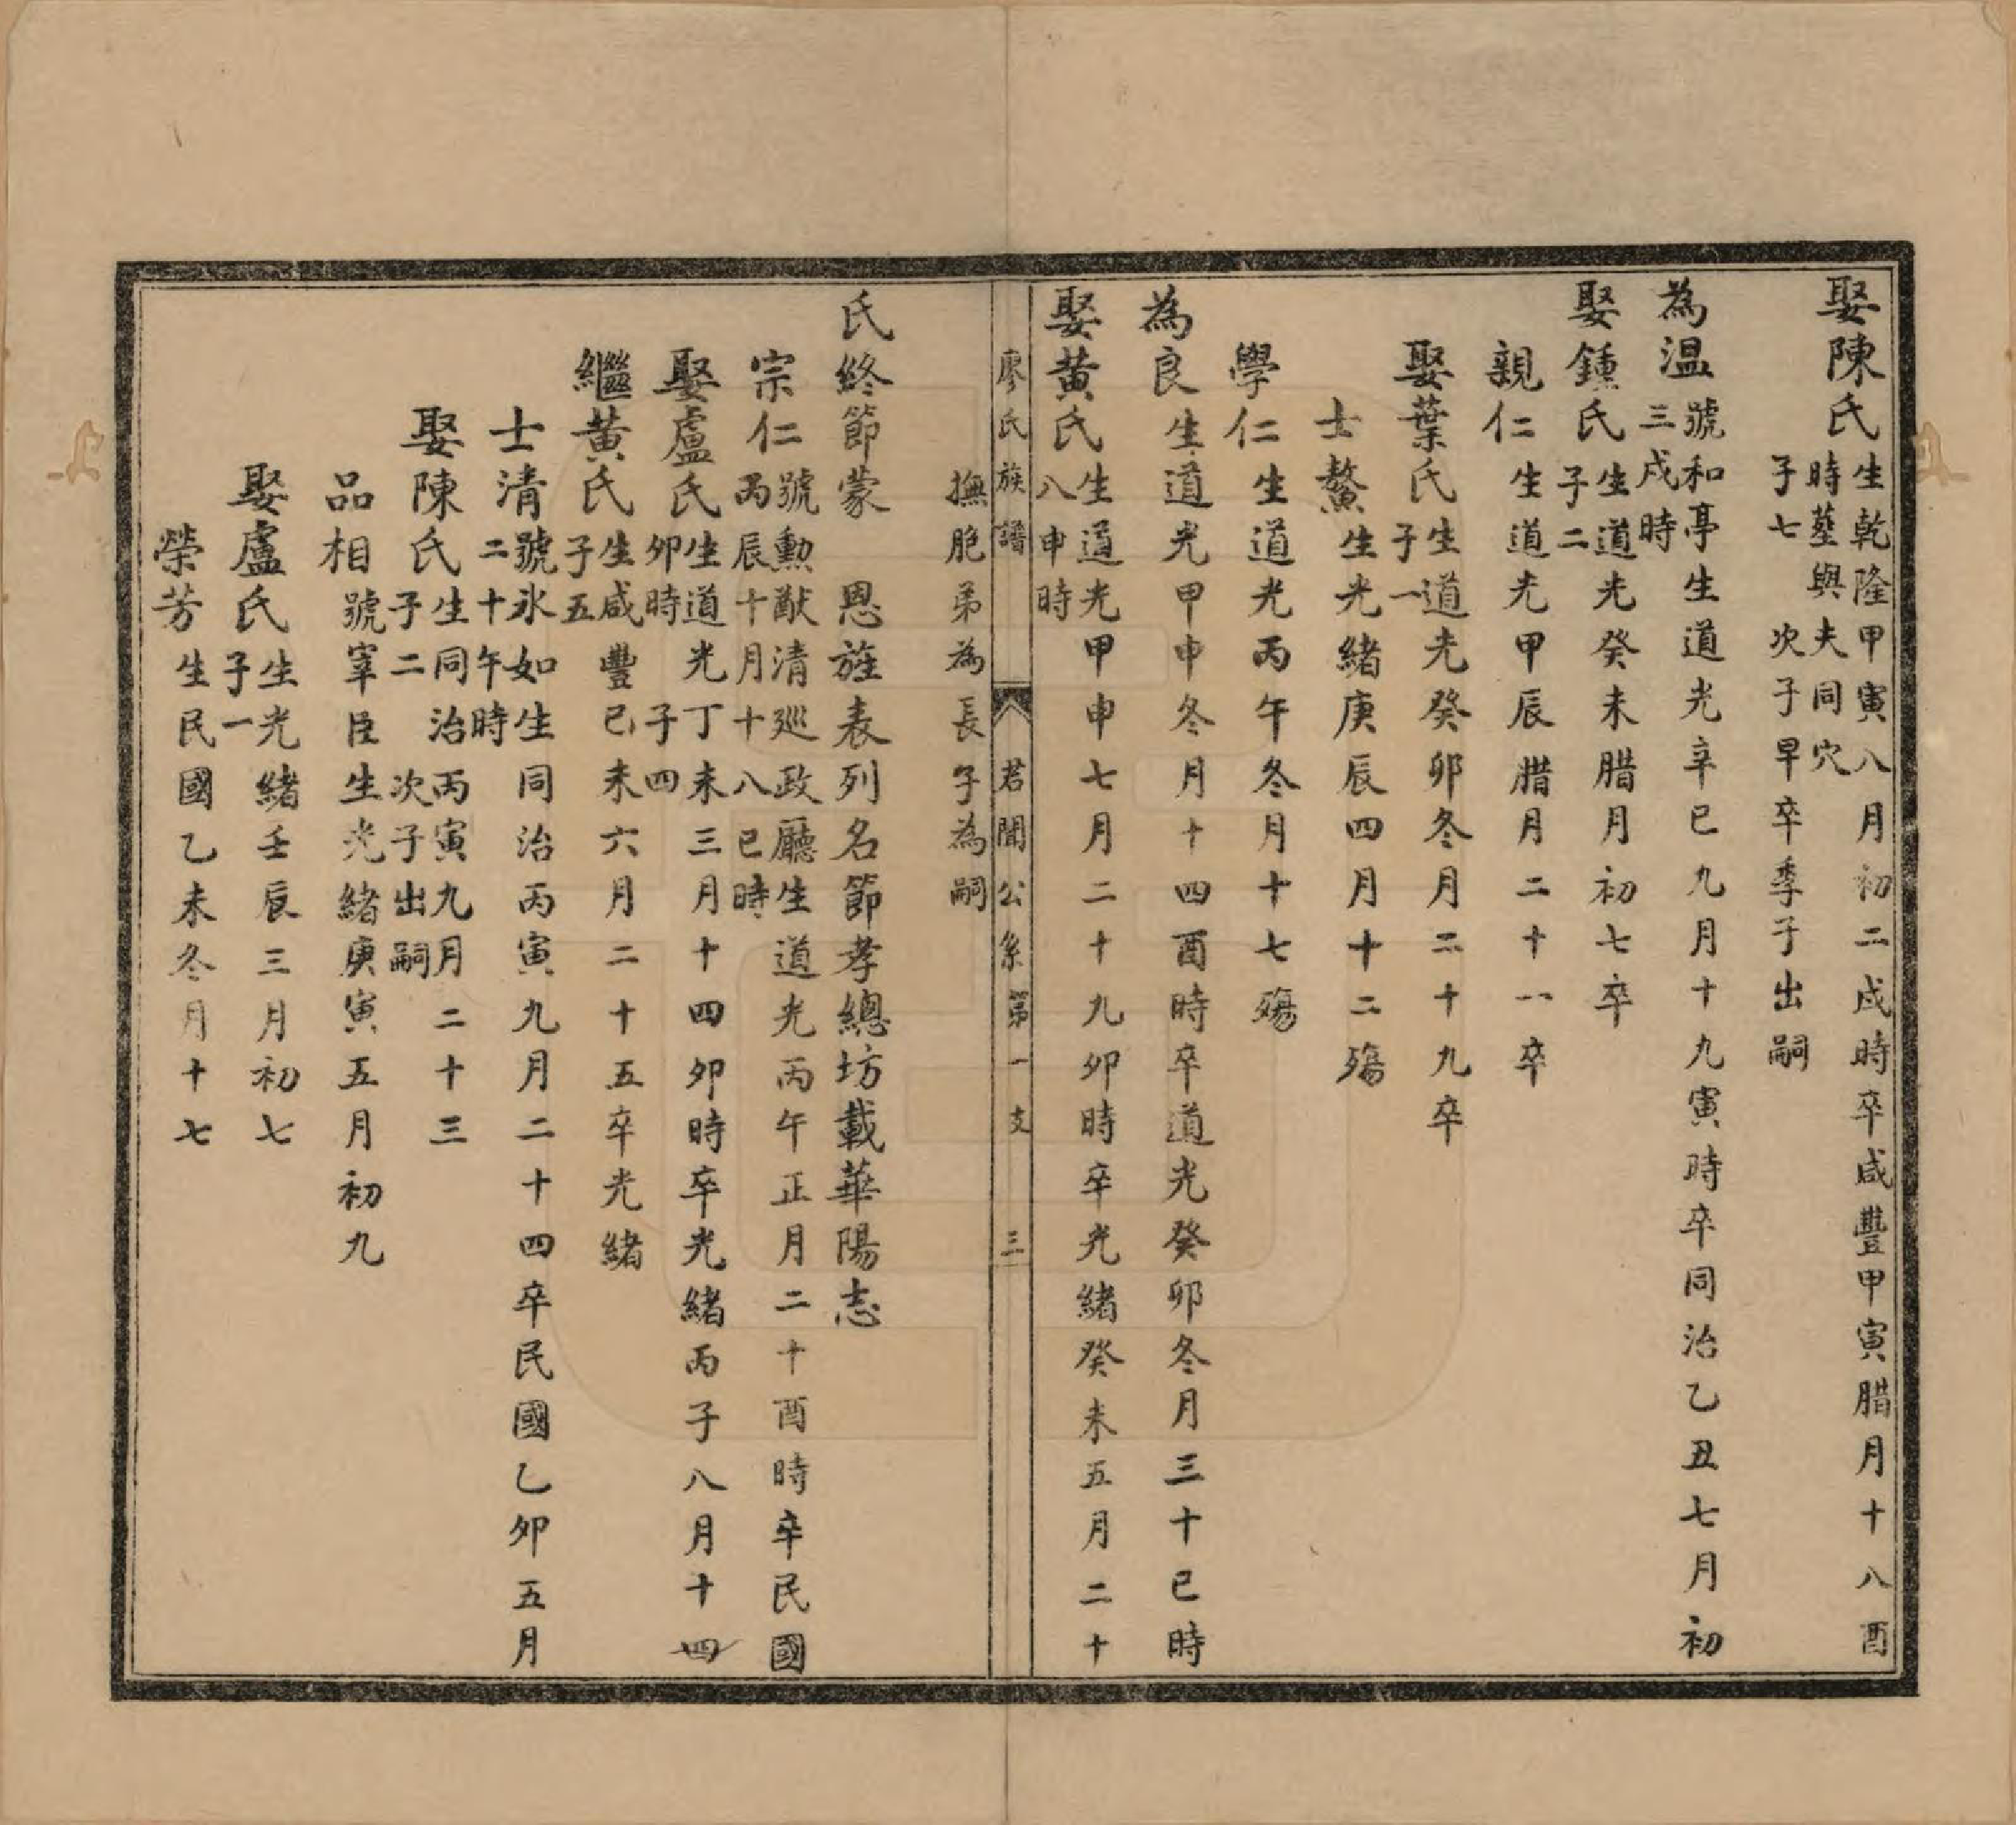 娶陳氏生乾隆甲寅八月初二戌時卒咸豐甲寅腊月十八酉
時墓與夫同穴
子七 次子早卒季子出嗣
為溫號和亭生道光辛巳九月十九寅時卒同治乙丑七月初
三戌時
娶鍾氏生道光癸未腊月初七卒
子二
親仁生道光甲辰腊月二十一卒
娶葉氏生道光癸卯冬月二十九卒
子一
士鰲生光緒庚辰四月十二殤
學仁生道光丙午冬月十七殤
為良生道光甲申冬月十四酉時卒道光癸卯冬月三十巳時
娶黃氏生道光甲申七月二十九卯時卒光緒癸未五月二十
八申時
廖氏族譜 君聞公系第一支 三
撫胞弟為長子為嗣
氏終節蒙 恩旌表列名節孝總坊載華陽志
宗仁號勳猷清廵政廳生道光丙午正月二十酉時卒民國
丙辰十月十八巳時
娶盧氏生道光丁未三月十四卯時卒光緒丙子八月十四
卯時 子四
繼黃氏生咸豐己未六月二十五卒光緒
子五
士清號氷如生同治丙寅九月二十四卒民國乙卯五月
二十午時
娶陳氏生同治丙寅九月二十三
子二 次子出嗣
品相號宰臣生光緒庚寅五月初九
娶盧氏生光緒壬辰三月初七
子一
榮芳生民國乙未冬月十七